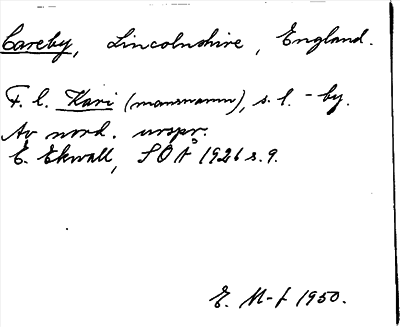 Careby, Lincolnshire, England.
F. l. Kari (mansnamn), s. l. - by.
Av nord. urspr.
E. Ekwall, SOÅ 1926 s. 9.
E. M-f 1950.